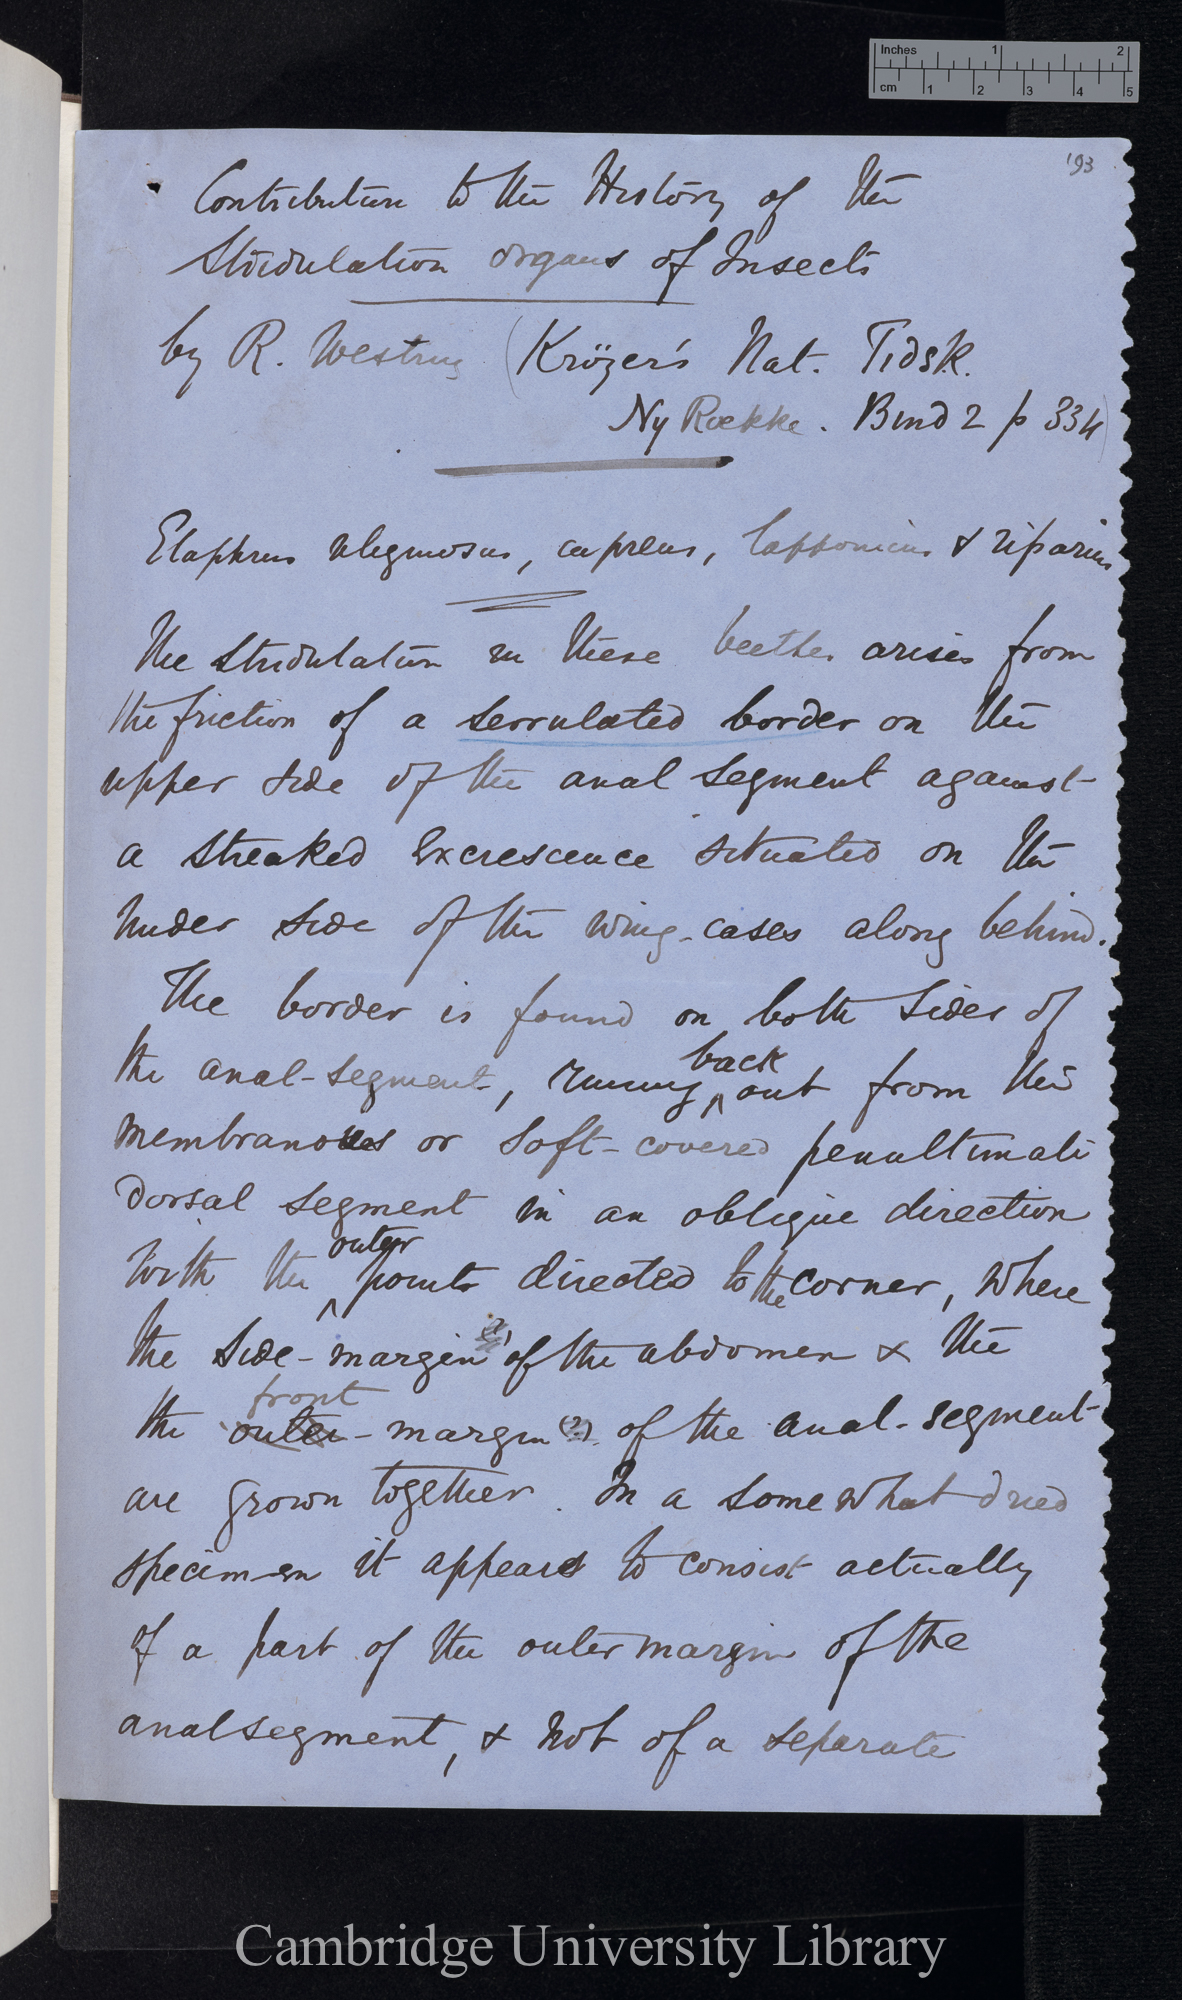 Inches 1 2
cm 1 2 3 4 5
193
Contribution to the History of the
Stridulation organs of Insects
by R. Westring (Kröyer's Nat. Tidsk.
Ny Roekke. Bind 2 p 334)
Elaphrus uliginosus, cupreus, lapponicus & riparius
The Stridulation in these beetles arises from
the friction of a serrulated border on the
upper side of the anal segment against
a streaked excrescence situated on the
under side of the wing-cases along behind.
The border is found on both sides of
back
the anal-segment, running out from the
membranous or soft-covered penultimate
dorsal segment in an oblique direction
outer
with the points directed to the corner, where
the side-margin of the abdomen & the
front
the outer-margin (?) of the anal-segment
are grown together. In a somewhat dried
specimen it appears to consist actually
of a part of the outer margin of the
anal segment, & not of a separate
Cambridge University Library